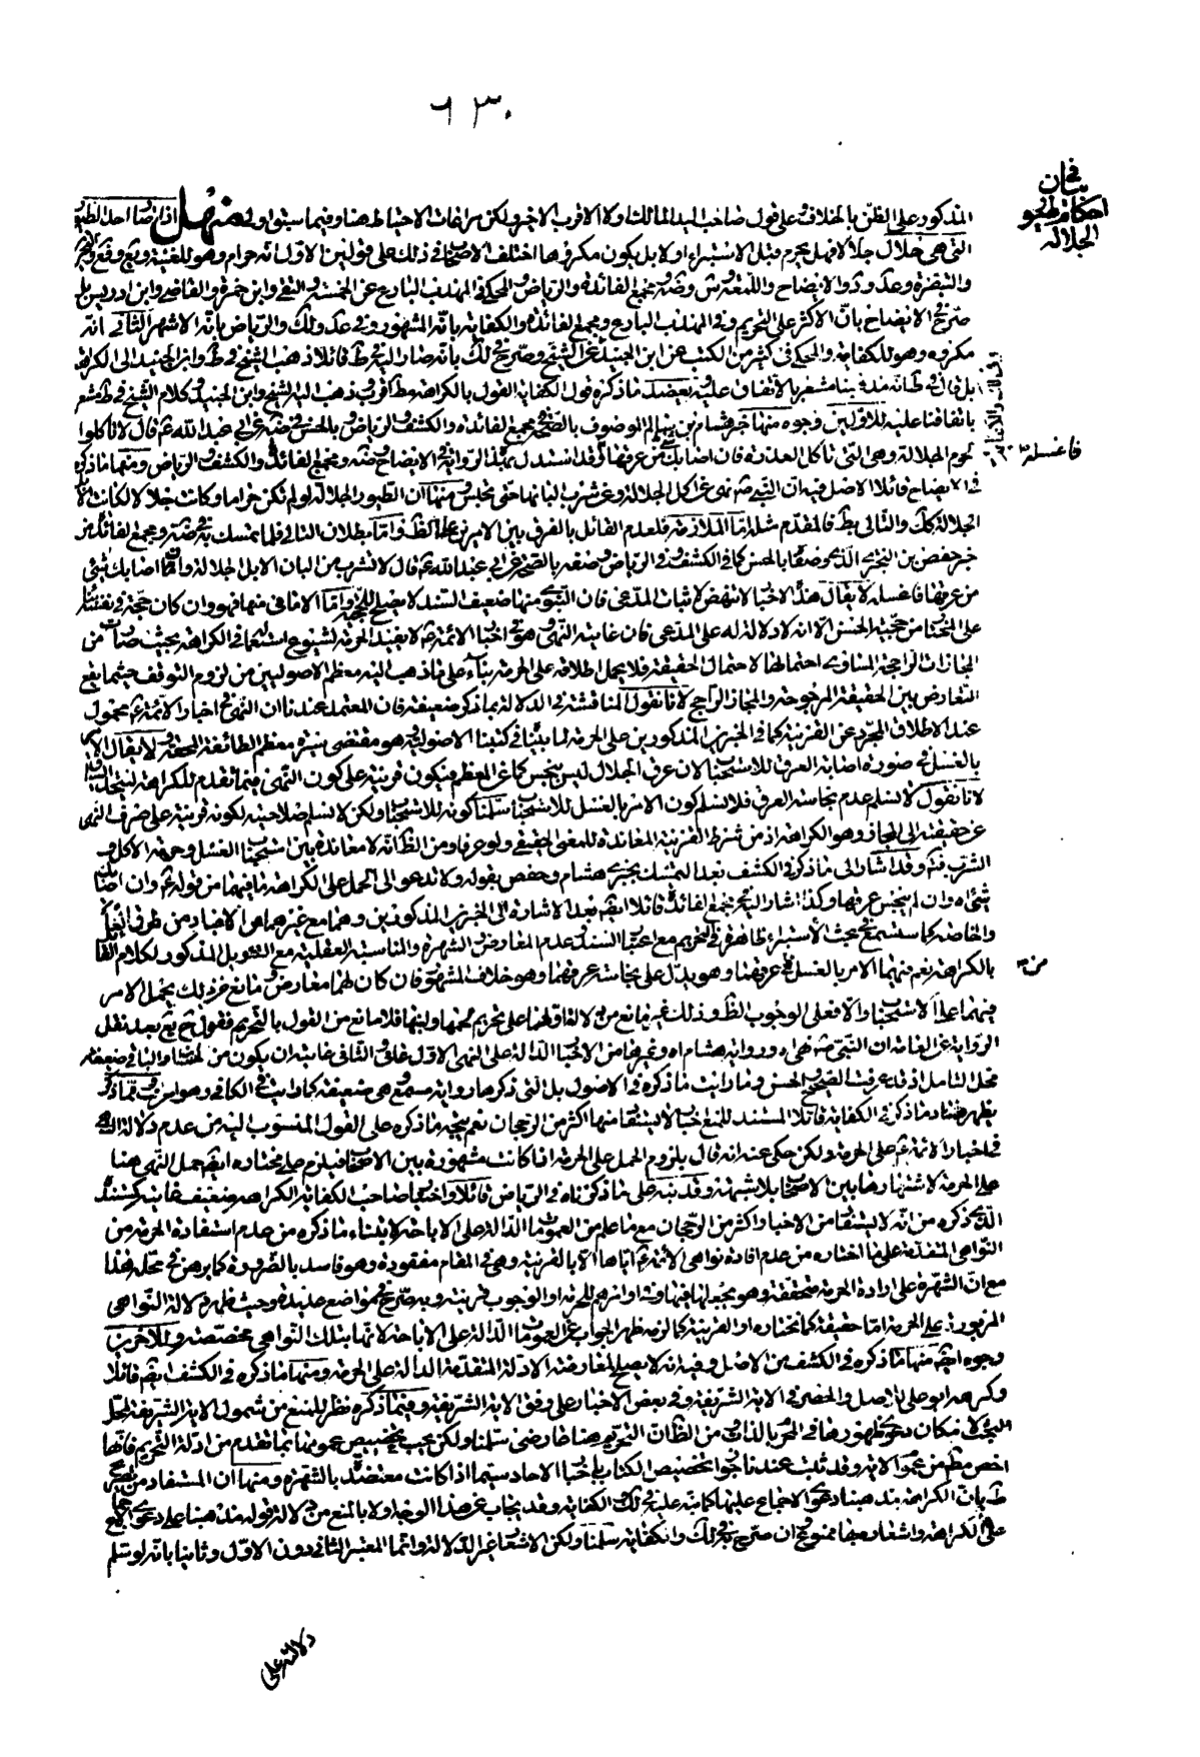 ٦٣٠
في
بيان
احكام طيور
الجلالة
المذكور على الظن بالخلاف على قول صاحب المدارك اولا الاقرب الاخير ولكن مراعات الاحتياط هنا وفيما سبق اولى منهل اذا صار احد الطيور
التى هى حلال جلالا فهل يحرم قبل الاستبراء اولا بل يكون مكروها اختلف الاصحاب فى ذلك على قولين الاول انه حرام وهو للغنية ويع وفع
والتبصرة وعد ود والايضاح واللمعة وس وضة ومجمع الفائدة والرياض والمحكى فى المهذب البارع عن الخمسة والتقى وابن حمزة والقاضى وابن ادريس بل
صرح فى الايضاح بان الاكثر على التحريم وفى المهذب البارع ومجمع الفائدة والكفاية بانه المشهور وفى عد ولك والرياض بانه الاشهر الثانى انه
مكروه وهو للكفاية والمحكى فى كثير من الكتب عن ابن الجنيد عن الشيخ وصرح فى لك بانه صار اليه فى ط قائلا ذهب الشيخ فى ط وابن الجنيد الى الكراهة
بل قال فى ط انه مذهبنا مشعر بالاتفاق عليه ويعضد ما ذكره قول الكفاية القول بالكراهة اقرب ذهب اليه الشيخ وابن الجنيد وكلام الشيخ فى ط مشعر
باتفاقنا عليه للاولين وجوه منها خبر هشام بن سالم الموصوف بالصحة فى مجمع الفائدة والكشف والرياض وبالحسن فى ضة عن ابى عبد الله ع قال لا تاكلوا
لحوم الجلالة وهى التى تاكل العذرة فان اصابك من عرقها وقد استدل بهذا الرواية فى الايضاح وضة ومجمع الفائدة والكشف والرياض ومنها ما ذكره
فاغسله
فى الايضاح قائلا الاصل فيه ان النبى ص نهى عن اكل الجلالة وعن شرب البانها حتى تحبس ومنها ان الطيور الجلالة لو لم تكن حراما وكانت حلالا لكانت الابل
الجلالة كك والتالى بط فالمقدم مثله اما الملازمة فلعدم القائل بالفرق بين الامرين على الظ واما بطلان التالى فلما تمسك به فى ضة ومجمع الفائدة من
خبر حفص بن البخترى الذى وصفا بالحسن كما فى الكشف وفى الرياض وصفه بالصحة عن ابى عبد الله ع قال لا تشرب من البان الابل الجلالة وان اصابك شئ
من عرقها فاغسله لا يقال هذه الاخبار لا تنهض لاثبات المدعى فان النبوى منها ضعيف السند لا يصلح للحجية واما الامامى منها فهو وان كان حجة فى نفسه بناء
على المختار من حجية الحسن الا انه لا دلالة له على المدعى فان غاية النهى وهو فى اخبار الائمة ع لا يفيد الحرمة لشيوع استعماله فى الكراهة بحيث صارت من
المجازات الراجحة المساوى احتمالها لاحتمال الحقيقة فلا يحمل اطلاقه على الحرمة بناء على ما ذهب اليه معظم الاصوليين من لزوم التوقف حيثما يقع
التعارض بين الحقيقة المرجوحة والمجاز الراجح لانا نقول المناقشة فى الدلالة بما ذكر ضعيفة فان المعتمد عندنا ان النهى فى اخبار الائمة ع محمول
عند الاطلاق المجرد عن القرينة كما فى الخبرين المذكورين على الحرمة لما بيناه فى كتبنا الاصولية وهو مقتضى سيرة معظم الطائفة المحقة لا يقال الامر
بالغسل فى صورة اصابة العرق للاستحباب لان عرق الجلال ليس بنجس كما عن المعظم فيكون قرينة على كون النهى فيما تقدم للكراهة
لانا نقول لا نسلم عدم نجاسة العرق فلا نسلم كون الامر بالغسل للاستحباب سلمنا كونه للاستحباب ولكن لا نسلم صلاحيته لكونه قرينة على صرف النهى
عن حقيقته الى المجاز وهو الكراهة اذ من شرط القرينة المعاندة للمعنى الحقيقى ولو عرفا ومن الظ انه لا معاندة بين استحباب الغسل وحرمة الاكل و
الشرب وقد اشار الى ما ذكر فى الكشف بعد التمسك بخبرى هشام وحفص بقوله ولا ندعو الى الحمل على الكراهة ما فيهما من قوله ع وان اصابك
شئ اه وان لم ينجس عرقها وكذا اشار اليه فى مجمع الفائدة قائلا ايضا بعد الاشارة الى الخبرين المذكورين وهما مع غيرهما من الاخبار من طرق العامة
والخاصة كما ستسمع فى بحث الاستبراء ظاهرة فى التحريم مع اعتبار السند وعدم المعارض والشهرة والمناسبة العقلية مع التاويل المذكور لكلام القائل
بالكراهة نعم فيهما الامر بالغسل عرقها وهو يدل على نجاسة عرقهما وهو خلاف المشهور فان كان لهما معارض ومانع عن ذلك يحمل الامر
من
فيهما على الاستحباب والا فعلى الوجوب الظ وذلك غير مانع من دلالتهما على تحريم لحمها ولبنها فلا مانع من القول بالتحريم فقول شرح يع بعد نقل
الرواية عن العامة ان النبى ص نهى اه ورواية هشام اه وغيرها من الاخبار الدالة على النهى الاول عامى والثانى غايته ان يكون من الحسان والباقى ضعيفة
محل التامل اذ قد عرفت الصحيح والحسن وما رايت ما ذكره فى الاصول بل التى ذكرها رواية مسمع هى ضعيفة كما رايت فى الكافى
يظهر فساد ما ذكر فى الكفاية قائلا المستند للمنع اخبار لا يستفاد منها اكثر من الرجحان نعم يتجه ما ذكره على القول المنسوب اليه من عدم دلالة النهى
فى اخبار الائمة ع على الحرمة ولكن حكى عنه انه قال بلزوم الحمل على الحرمة اذا كانت مشهورة بين الاصحاب فيلزم على مختاره ايضا حمل النهى هنا
على الحرمة لاشتهارها بين الاصحاب بلا شبهة وقد نبه على ما ذكرناه فى الرياض قائلا واختيار صاحب الكفاية الكراهة ضعيف غايته كمستنده
الذى ذكره من انه لا يستفاد من الاخبار اكثر من الرجحان مع ما علم من العمومات الدالة على الاباحة لابتناء ما ذكره من عدم استفادة الحرمة من
النواهى المتقدمة على ما اختاره من عدم افادة نواهى الائمة ع اياها الا بالقرينة وهى فى المقام مفقودة وهو فاسد بالضرورة كما برهن فى محله هذا
مع ان الشهرة على ارادة الحرمة متحققة وهو يجعلها فيها وفى اوامرهم للحرمة او الوجوب قرينة وبه صرح فى مواضع عديدة وحيث ظهر دلالة النواهى
المزبورة على الحرمة اما حقيقة كما نختاره او القرينة كما لزمه ظهر الجواب عن العمومات الدالة على الاباحة لانها بتلك النواهى مخصصة وللاخرين
وجوه ايضا منها ما ذكره فى الكشف من الاصل وفيه انه لا يصلح لمعارضة الادلة المتقدمة الدالة على الحرمة ومنها ما ذكره فى الكشف ايضا قائلا
وكرهه ابو على للاصل والحصر فى الاية الشريفة وفى بعض الاخبار على وفق الاية الشريفة وفيما ذكره نظر للمنع من شمول الاية الشريفة لمحل
البحث لامكان دعوى ظهورها فى المحرم بالذات ومن الظ ان التحريم هنا عارضى سلمنا ولكن يجب تخصيص عمومها بما تقدم من ادلة التحريم فانها
اخص مط من عموم الاية وقد ثبت عندنا جواز تخصيص الكتاب باخبار الاحاد سيما اذا كانت معتضدة بالشهرة ومنها ان المستفاد من تصريح
ط بان الكراهة مذهبنا دعوى الاجماع عليها كما نبه عليه فى لك والكفاية وقد يجاب عن هذا الوجه اولا بالمنع من دلالة قوله مذهبنا على دعوى الاجماع
على الكراهة واشعاره بها ممنوع وان صرح به فى لك والكفاية سلمنا ولكن الاشعار غير الدلالة وانما المعتبر الثانى دون الاول وثانيا بانه لو سلم
دلالته على